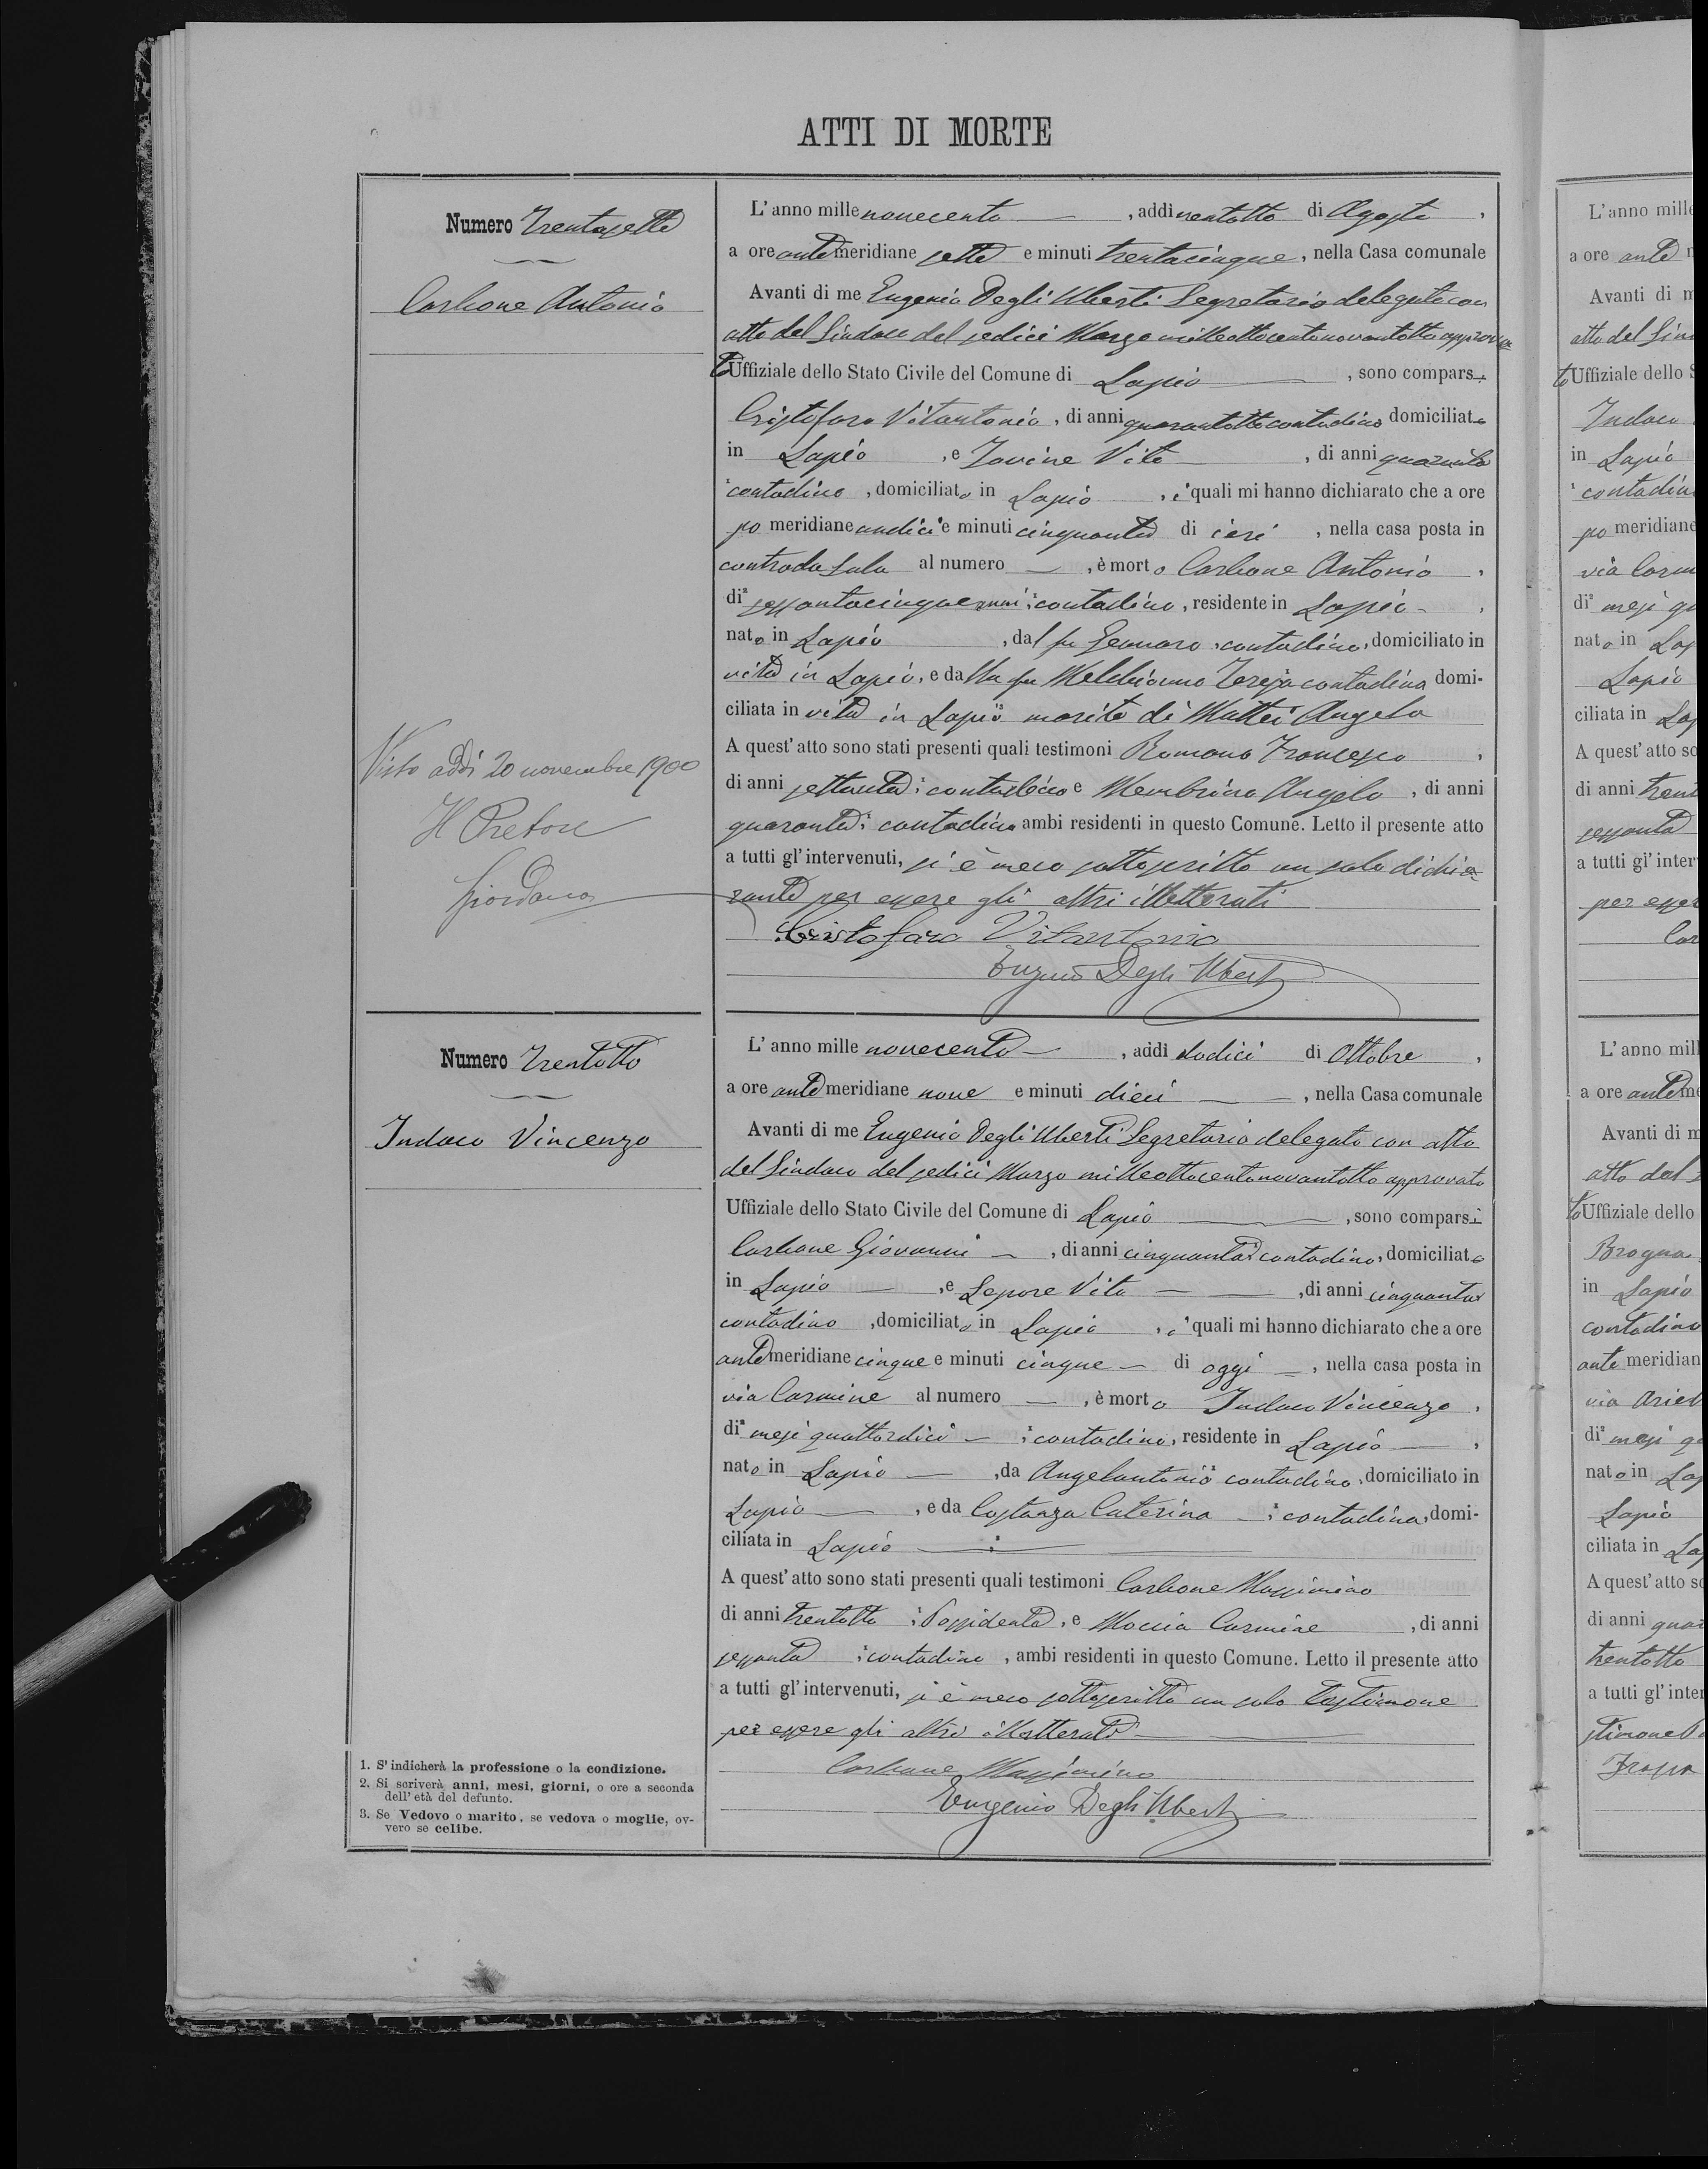 ATTI DI MORTE
Numero Trentasette
Carbone Antonio
Visto addì 20 novembre 1900
Il Pretore
Giordano
L'anno mille novecento — , addì ventotto di Agosto ,
a ore antemeridiane sette e minuti trentacinque, nella Casa comunale
Avanti di me Eugenio Degli Uberti Segretario delegato con
atto del Sindaco del sedici Marzo milleottocentonovantotto approva
to Uffiziale dello Stato Civile del Comune di Lapio — , sono comparsi
Cristofaro Vitantonio, di anni quarantotto contadino domiciliato
in Lapio , e Iovine Vito — , di anni quaranta
contadino , domiciliato in Lapio , i quali mi hanno dichiarato che a ore
po meridiane undici e minuti cinquanta di ieri , nella casa posta in
contrada Sala al numero — , è morto Carbone Antonio ,
di sessantacinque anni contadino, residente in Lapio — ,
nato in Lapio , dal fu Gennaro, contadino, domiciliato in
vita in Lapio, e dalla fu Melchionno Teresa contadina domi-
ciliata in vita in Lapio marito di Mattei Angela
A quest'atto sono stati presenti quali testimoni Romano Francesco ,
di anni settanta contadino e Membrino Angelo , di anni
quaranta contadino ambi residenti in questo Comune. Letto il presente atto
a tutti gl'intervenuti, si è meco sottoscritto un solo dichia
rante per essere gli altri illetterati
Cristofaro Vitantonio
Eugenio Degli Uberti
Numero Trentotto
Indaco Vincenzo
L'anno mille novecento — , addì dodici di Ottobre ,
a ore antemeridiane nove e minuti dieci — — , nella Casa comunale
Avanti di me Eugenio Degli Uberti Segretario delegato con atto
del Sindaco del sedici Marzo milleottocentonovantotto approvato
Uffiziale dello Stato Civile del Comune di Lapio — , sono comparsi
Carbone Giovanni — , di anni cinquanta contadino, domiciliato
in Lapio — , e Lepore Vito — — , di anni cinquanta
contadino , domiciliato in Lapio , i quali mi hanno dichiarato che a ore
antemeridiane cinque e minuti cinque — di oggi — , nella casa posta in
via Carmine al numero — , è morto Indaco Vincenzo ,
di mesi quattordici — contadino, residente in Lapio — ,
nato in Lapio — , da Angelantonio contadino, domiciliato in
Lapio — , e da Costanza Caterina — contadina, domi-
ciliata in Lapio —
A quest'atto sono stati presenti quali testimoni Carbone Massimino
di anni trentotto Possidente, e Moccia Carmine , di anni
sessanta contadino , ambi residenti in questo Comune. Letto il presente atto
a tutti gl'intervenuti, si è meco sottoscritto un solo testimone
per essere gli altri illetterati —
Carbone Massimino
Eugenio Degli Uberti
1. S'indicherà la professione o la condizione.
2. Si scriverà anni, mesi, giorni, o ore a seconda
dell'età del defunto.
3. Se Vedovo o marito, se vedova o moglie, ov-
vero se celibe.
L'anno mille
a ore ante m
Avanti di m
atto del Sin
to Uffiziale dello S
Indaco
in Lapio
contadin
po meridiane
via Carm
di mesi qu
nato in Lap
Lapio
ciliata in Lap
A quest'atto so
di anni trent
sessanta
a tutti gl'inter
per esser
Car
L'anno mill
a ore ante me
Avanti di m
atto del S
to Uffiziale dello
Brogna
in Lapio
contadino
ante meridian
via Ariel
di mesi q
nato in Lap
Lapio
ciliata in La
A quest'atto so
di anni quar
trentotto
a tutti gl'inter
stimone